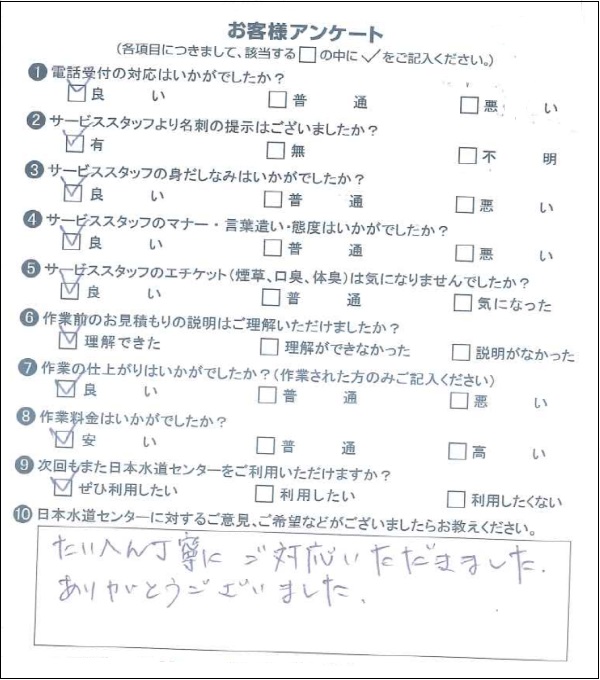 お客様アンケート
(各項目につきまして、該当する□の中に✓をご記入ください。)
❶ 電話受付の対応はいかがでしたか？
☑ 良い □ 普通 □ 悪い
❷ サービススタッフより名刺の提示はございましたか？
☑ 有 □ 無 □ 不明
❸ サービススタッフの身だしなみはいかがでしたか？
☑ 良い □ 普通 □ 悪い
❹ サービススタッフのマナー・言葉遣い・態度はいかがでしたか？
☑ 良い □ 普通 □ 悪い
❺ サービススタッフのエチケット(煙草、口臭、体臭)は気になりませんでしたか？
☑ 良い □ 普通 □ 気になった
❻ 作業前のお見積もりの説明はご理解いただけましたか？
☑ 理解できた □ 理解ができなかった □ 説明がなかった
❼ 作業の仕上がりはいかがでしたか？(作業された方のみご記入ください)
☑ 良い □ 普通 □ 悪い
❽ 作業料金はいかがでしたか？
☑ 安い □ 普通 □ 高い
❾ 次回もまた日本水道センターをご利用いただけますか？
☑ ぜひ利用したい □ 利用したい □ 利用したくない
❿ 日本水道センターに対するご意見、ご希望などがございましたらお教えください。
たいへん丁寧にご対応いただきました.
ありがとうございました.